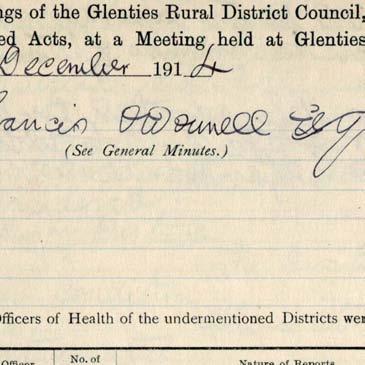 ngs of the Glenties Rural District Council,
ed Acts, at a Meeting held at Glenties
December 1914
rancis O'Donnell Esq
(See General Minutes.)
Officers of Health of the undermentioned Districts wer
Officer
No. of
Nature of Reports